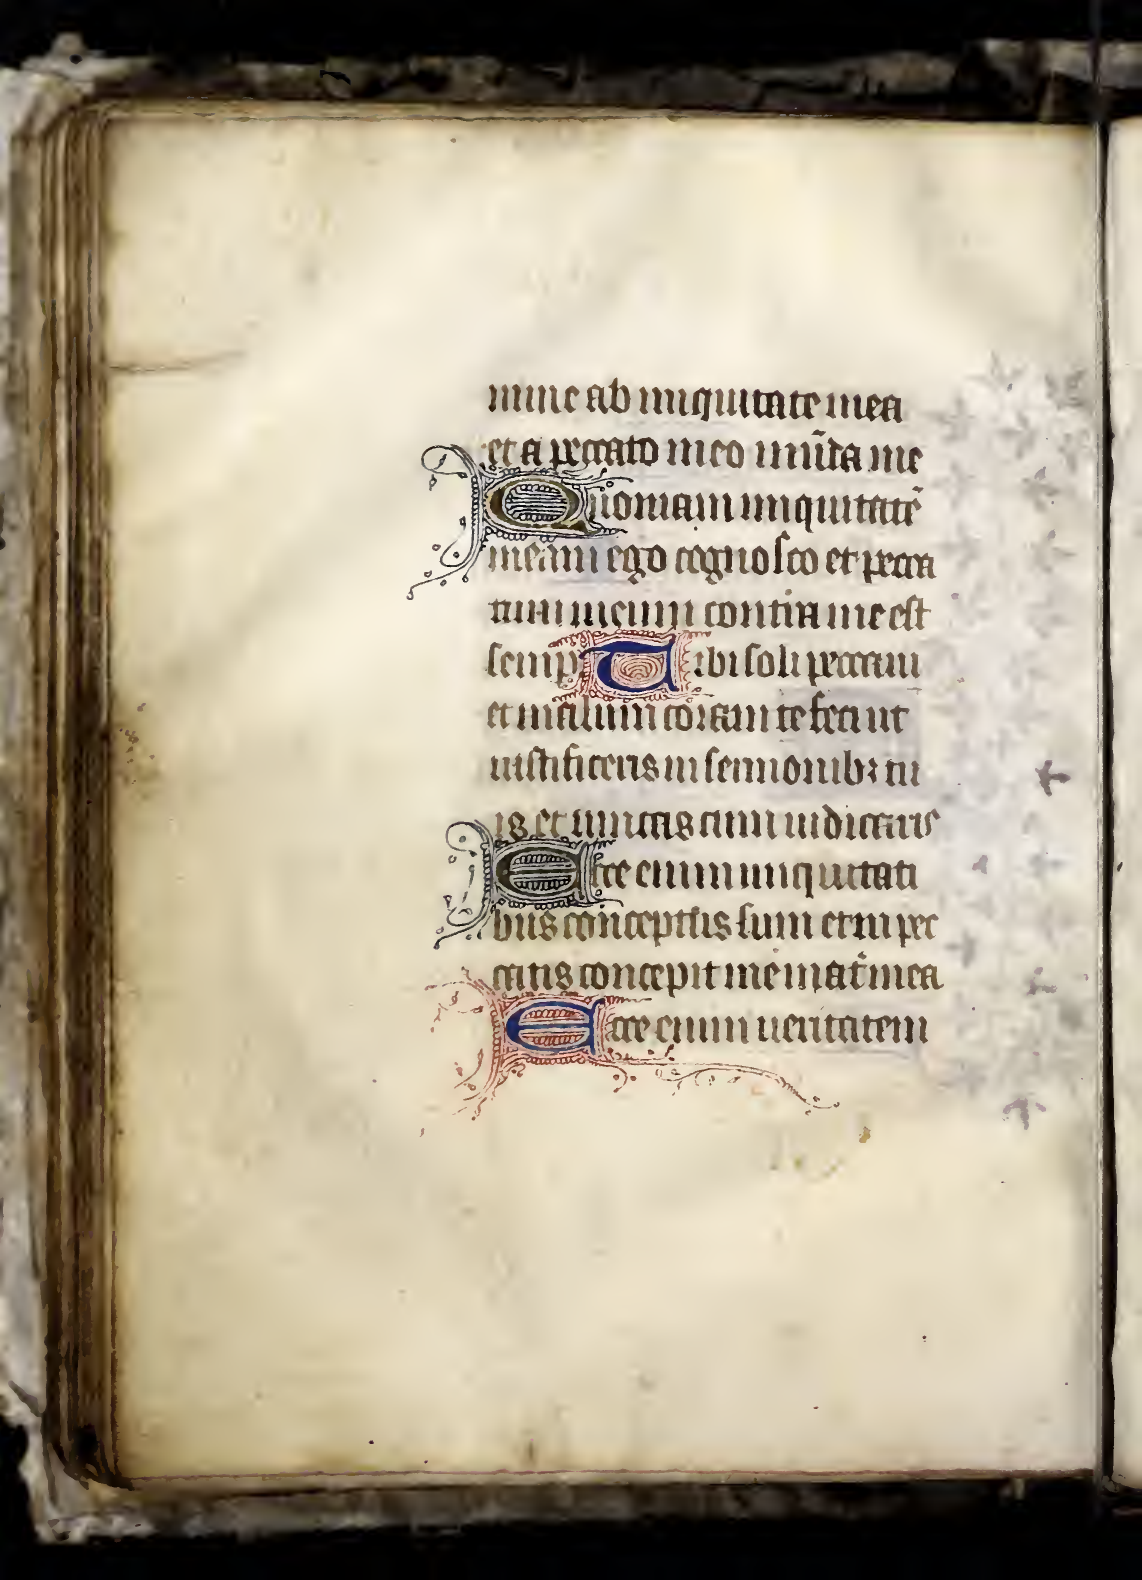 mine ab iniquitate mea
et a peccato meo mũda me
Quoniam iniquitatẽ
meam ego cognosco et pecca
tum meum contra me est
semp̱ Tibi soli peccaui
et malum coram te feci ut
iustificeris in sermonibꝫ tu
is et uincas cum iudicaris
Ecce enim iniquitati
bus conceptus sum et in pec
catis concepit me mat̃ mea
Ecce enim ueritatem